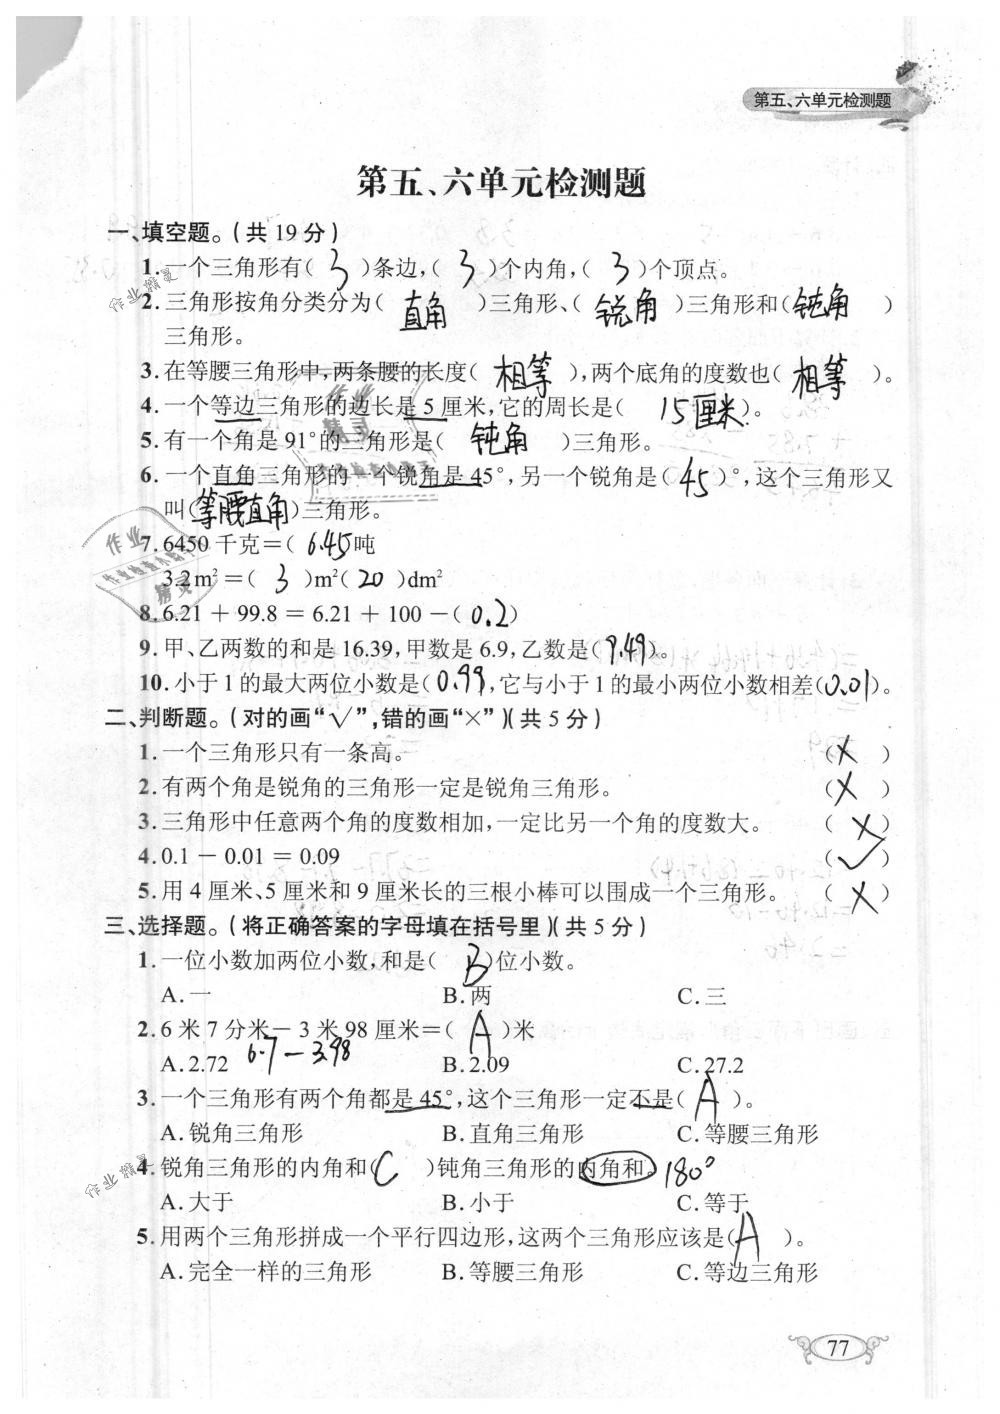 第五、六单元检测题
第五、六单元检测题
一、填空题。(共19分)
1.一个三角形有(3)条边,(3)个内角,(3)个顶点。
2.三角形按角分类分为(直角)三角形、(锐角)三角形和(钝角)
三角形。
3.在等腰三角形中,两条腰的长度(相等),两个底角的度数也(相等)。
4.一个等边三角形的边长是5厘米,它的周长是(15厘米)。
5.有一个角是91°的三角形是(钝角)三角形。
6.一个直角三角形的一个锐角是45°,另一个锐角是(45)°,这个三角形又
叫(等腰直角)三角形。
7.6450千克=(6.45吨
3.2m²=(3)m²(20)dm²
8.6.21+99.8=6.21+100-(0.2)
9.甲、乙两数的和是16.39,甲数是6.9,乙数是(9.49)。
10.小于1的最大两位小数是(0.99),它与小于1的最小两位小数相差(0.01)。
二、判断题。(对的画“√”,错的画“×”)(共5分)
1.一个三角形只有一条高。(×)
2.有两个角是锐角的三角形一定是锐角三角形。(×)
3.三角形中任意两个角的度数相加,一定比另一个角的度数大。(×)
4.0.1-0.01=0.09(√)
5.用4厘米、5厘米和9厘米长的三根小棒可以围成一个三角形。(×)
三、选择题。(将正确答案的字母填在括号里)(共5分)
1.一位小数加两位小数,和是(B)位小数。
A.一 B.两 C.三
2.6米7分米-3米98厘米=(A)米
6.7-3.98
A.2.72 B.2.09 C.27.2
3.一个三角形有两个角都是45°,这个三角形一定不是(A)。
A.锐角三角形 B.直角三角形 C.等腰三角形
4.锐角三角形的内角和(C)钝角三角形的内角和。180°
A.大于 B.小于 C.等于
5.用两个三角形拼成一个平行四边形,这两个三角形应该是(A)。
A.完全一样的三角形 B.等腰三角形 C.等边三角形
77